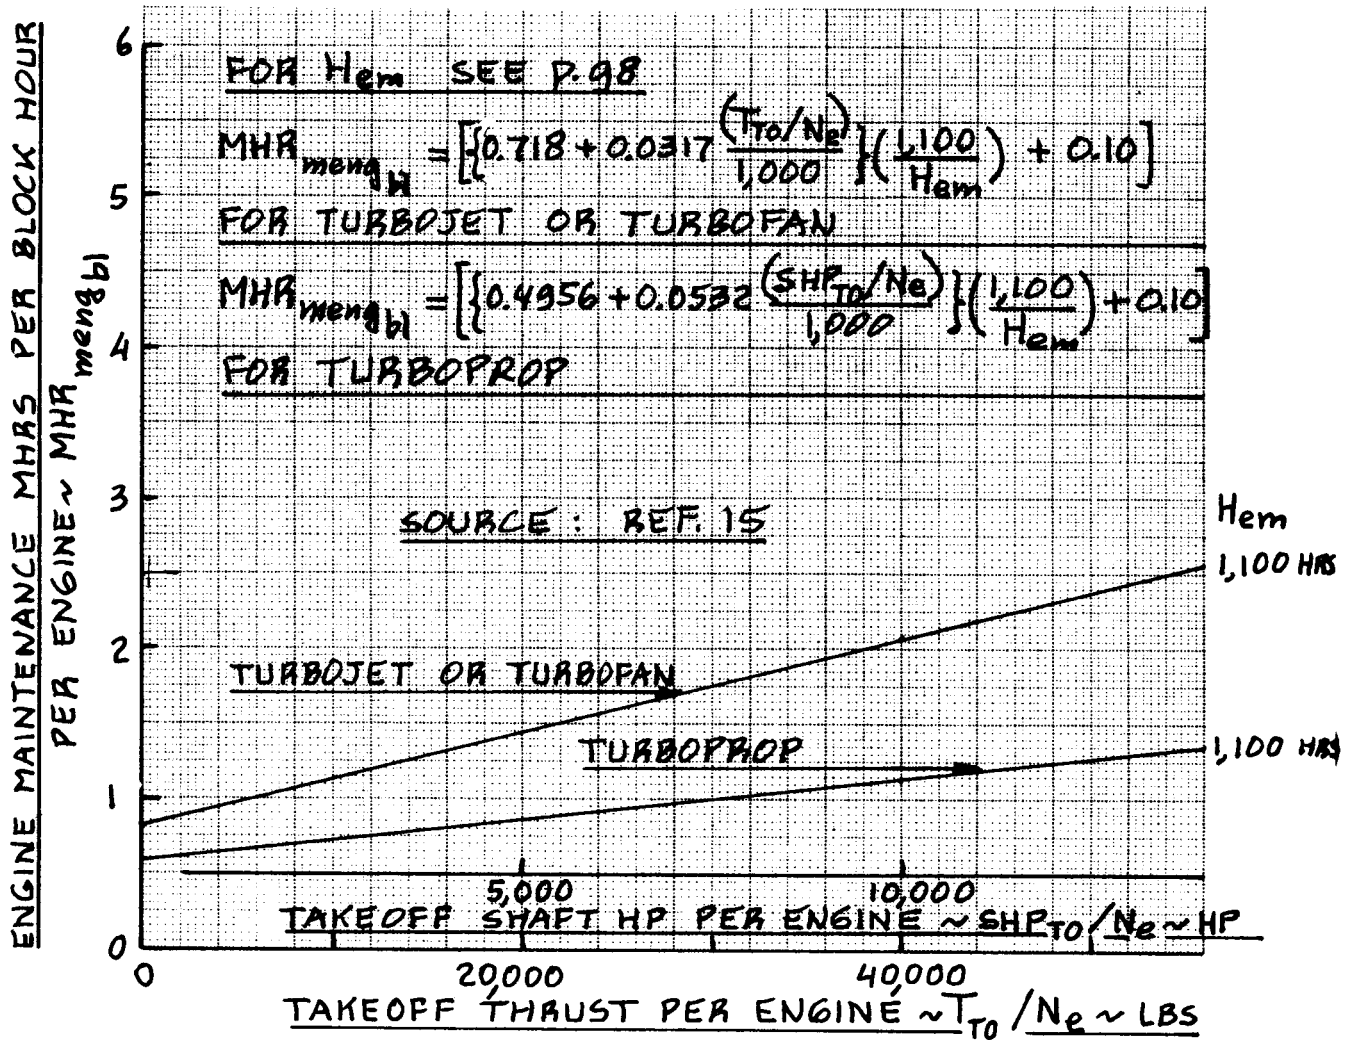 ENGINE MAINTENANCE MHRS PER BLOCK HOUR
PER ENGINE ~ MHR meng bl
6
5
4
3
2
1
0
FOR Hem SEE P. 98
MHR meng bl = [{0.718 + 0.0317 (T_TO/Ne)/1,000}(1,100/Hem) + 0.10]
FOR TURBOJET OR TURBOFAN
MHR meng bl = [{0.4956 + 0.0532 (SHP_TO/Ne)/1,000}(1,100/Hem) + 0.10]
FOR TURBOPROP
SOURCE : REF. 15
Hem
1,100 HRS
TURBOJET OR TURBOFAN
TURBOPROP
1,100 HRS
5,000 10,000
TAKEOFF SHAFT HP PER ENGINE ~ SHP_TO/Ne ~ HP
0 20,000 40,000
TAKEOFF THRUST PER ENGINE ~ T_TO/Ne ~ LBS